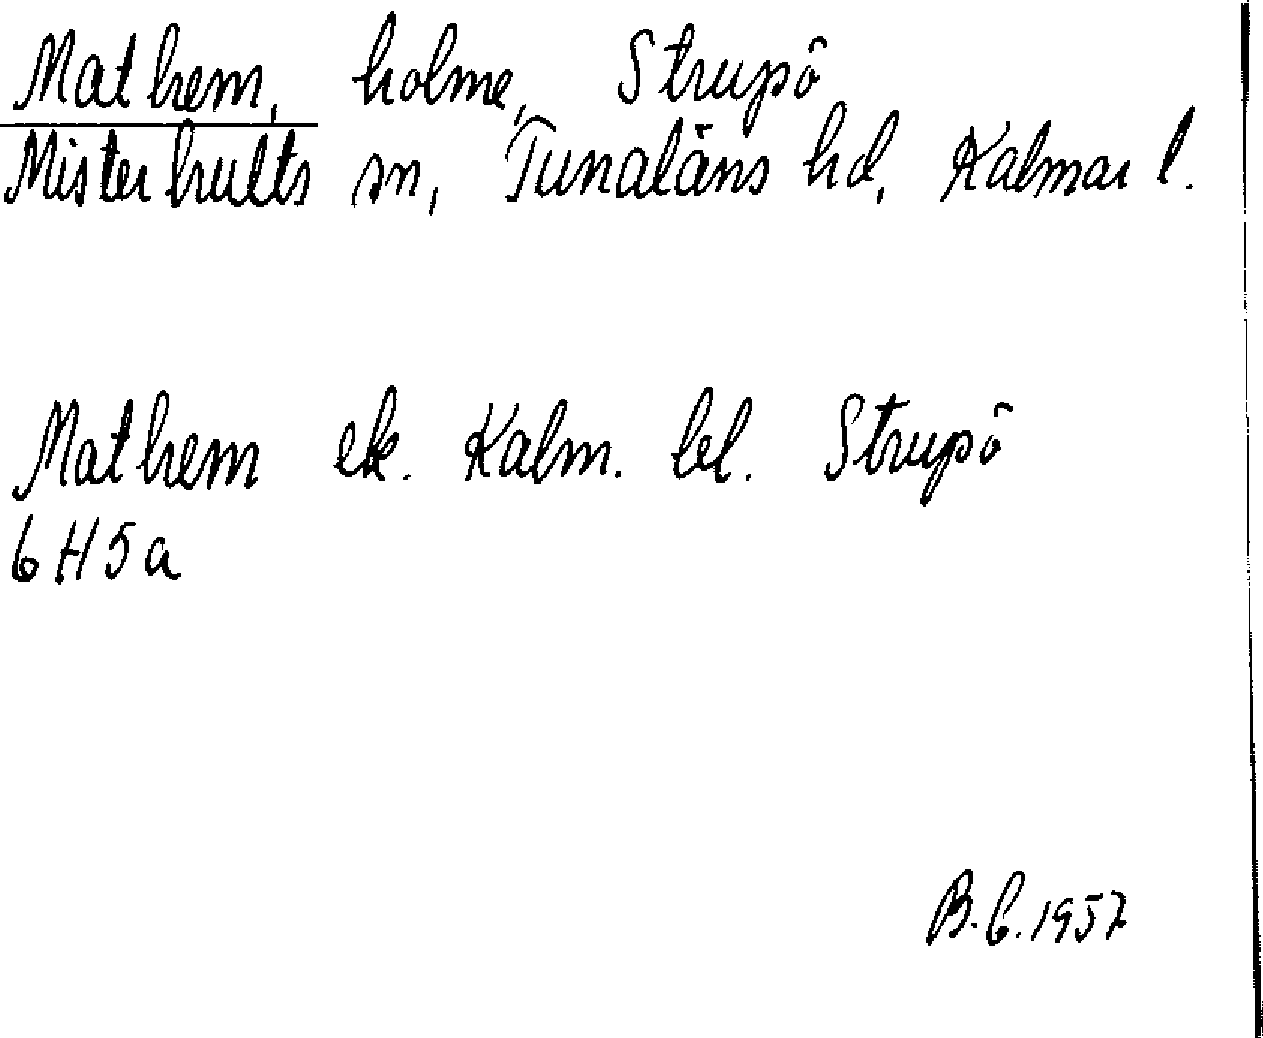 Mathem, holme, Strupö
Misterhults sn, Tunaläns hd, Kalmar l.
Mathem ek. Kalm. bl. Strupö
6H5a
B.C. 1957